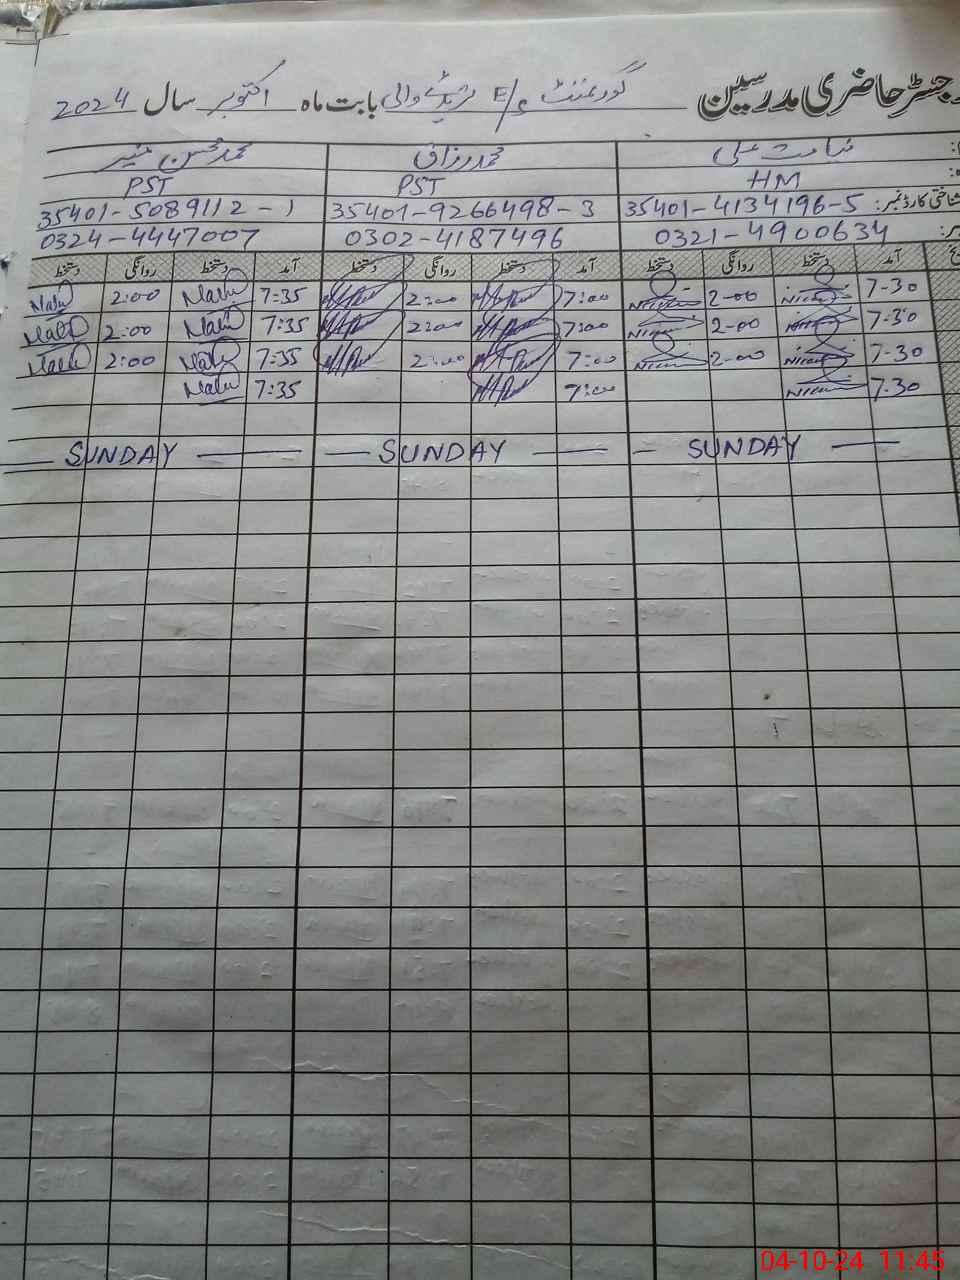 رجسٹر حاضری مدرسین گورنمنٹ E/S والی بابت ماہ اکتوبر سال 2024
علی محمد رزاق محمد محسن منیر
HM PST PST
شناختی کارڈ نمبر: 35401-4134196-5 35401-9266498-3 35401-5089112-1
0321-4900634 0302-4187496 0324-4447007
آمد دستخط روانگی دستخط آمد دستخط روانگی دستخط آمد دستخط روانگی دستخط
7-30 2-00 7:00 2:00 7:35 2:00
7-30 2-00 7:00 2:00 7:35 2:00
7-30 2-00 7:00 2:00 7:35 2:00
7-30 7:00 7:35
SUNDAY SUNDAY SUNDAY
04-10-24 11:45